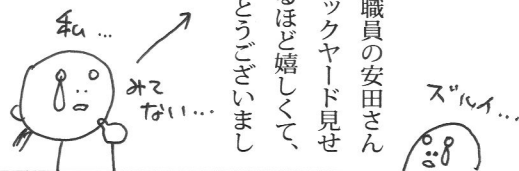 職員の安田さん
ックヤード見せ
るほど嬉しくて、
とうございまし
ズルイ...
私...
みて
ない...